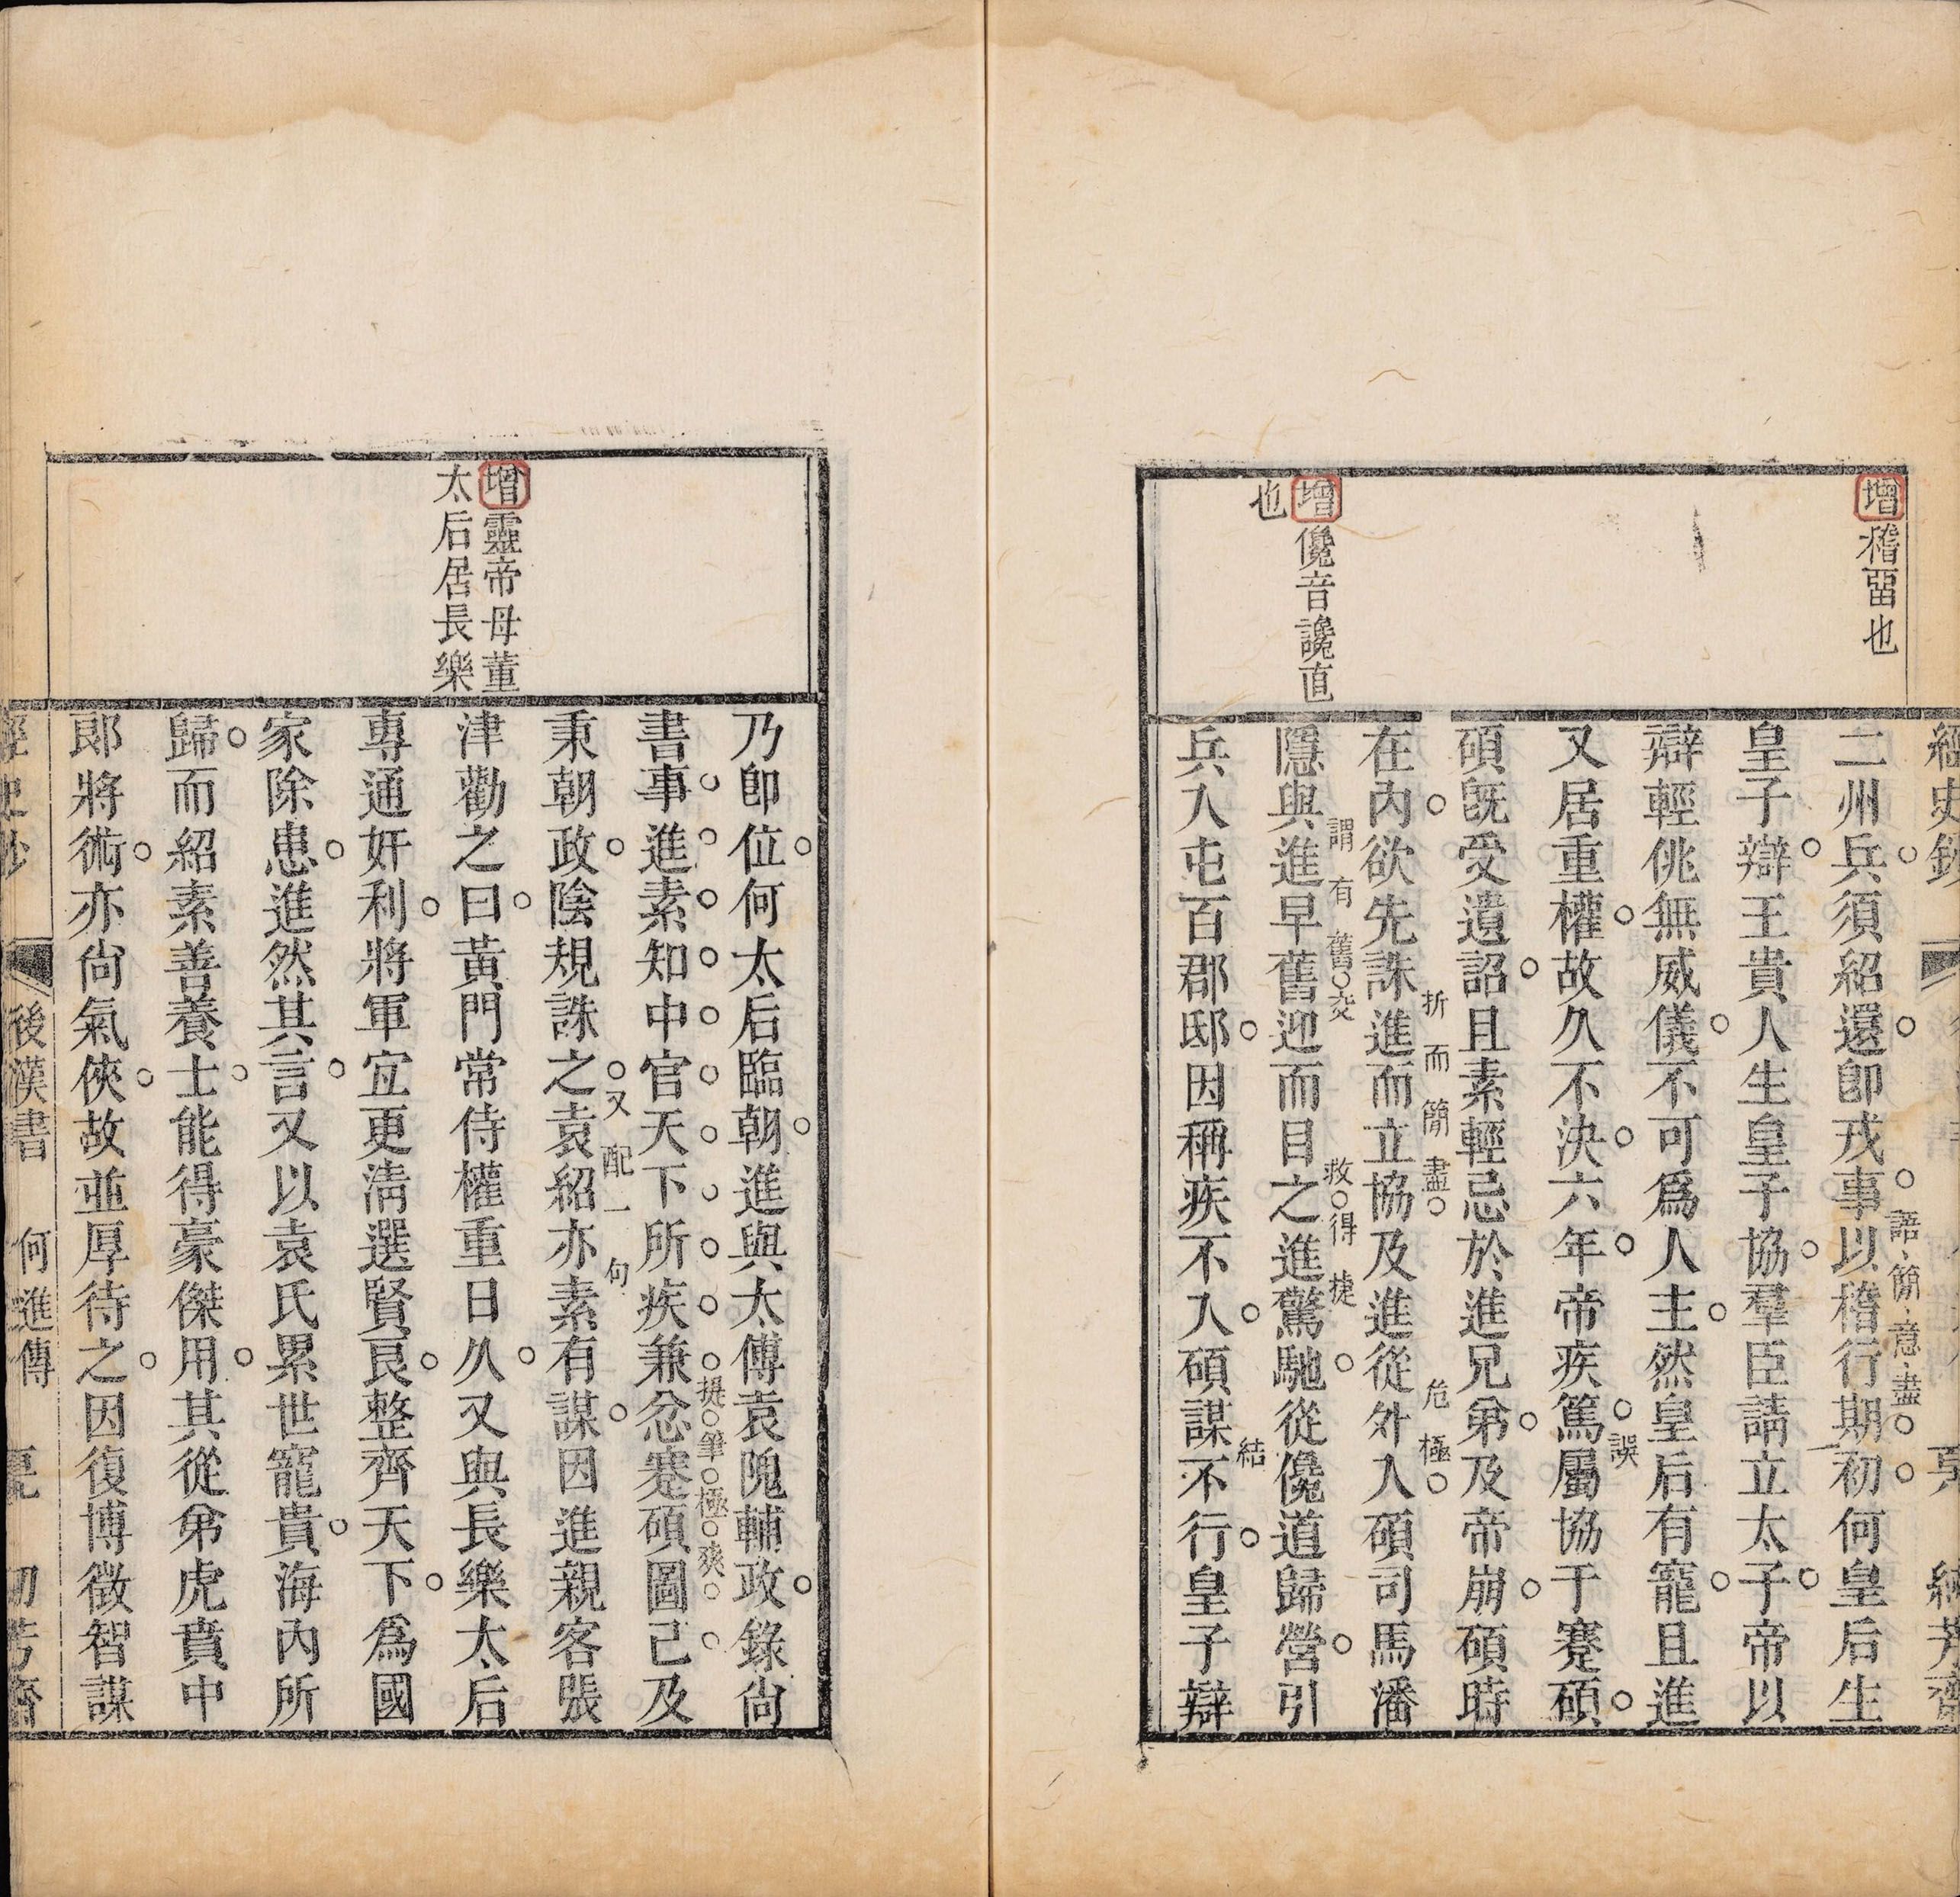 增稽畱也
增儳音讒直
也
二州兵須紹還卽戎事以稽行期初何皇后生
語簡意盡
皇子辯王貴人生皇子協羣臣請立太子帝以
辯輕佻無威儀不可爲人主然皇后有寵且進
又居重權故久不決六年帝疾篤屬協于蹇碩
誤
碩旣受遺詔且素輕忌於進兄弟及帝崩碩時
在內欲先誅進而立協及進從外入碩司馬潘
折而簡盡
危極
隱與進早舊迎而目之進驚馳從儳道歸營引
謂有舊交
救得捷
兵入屯百郡邸因稱疾不入碩謀不行皇子辯
結
增靈帝母董
太后居長樂
乃卽位何太后臨朝進與太傅袁隗輔政錄尙
書事進素知中官天下所疾兼忿蹇碩圖己及
提筆極爽
秉朝政陰規誅之袁紹亦素有謀因進親客張
又配一句
津勸之曰黃門常侍權重日久又與長樂太后
專通奸利將軍宜更淸選賢良整齊天下爲國
家除患進然其言又以袁氏累世寵貴海內所
歸而紹素善養士能得豪傑用其從弟虎賁中
郞將術亦尙氣俠故並厚待之因復博徵智謀
後漢書 何進傳